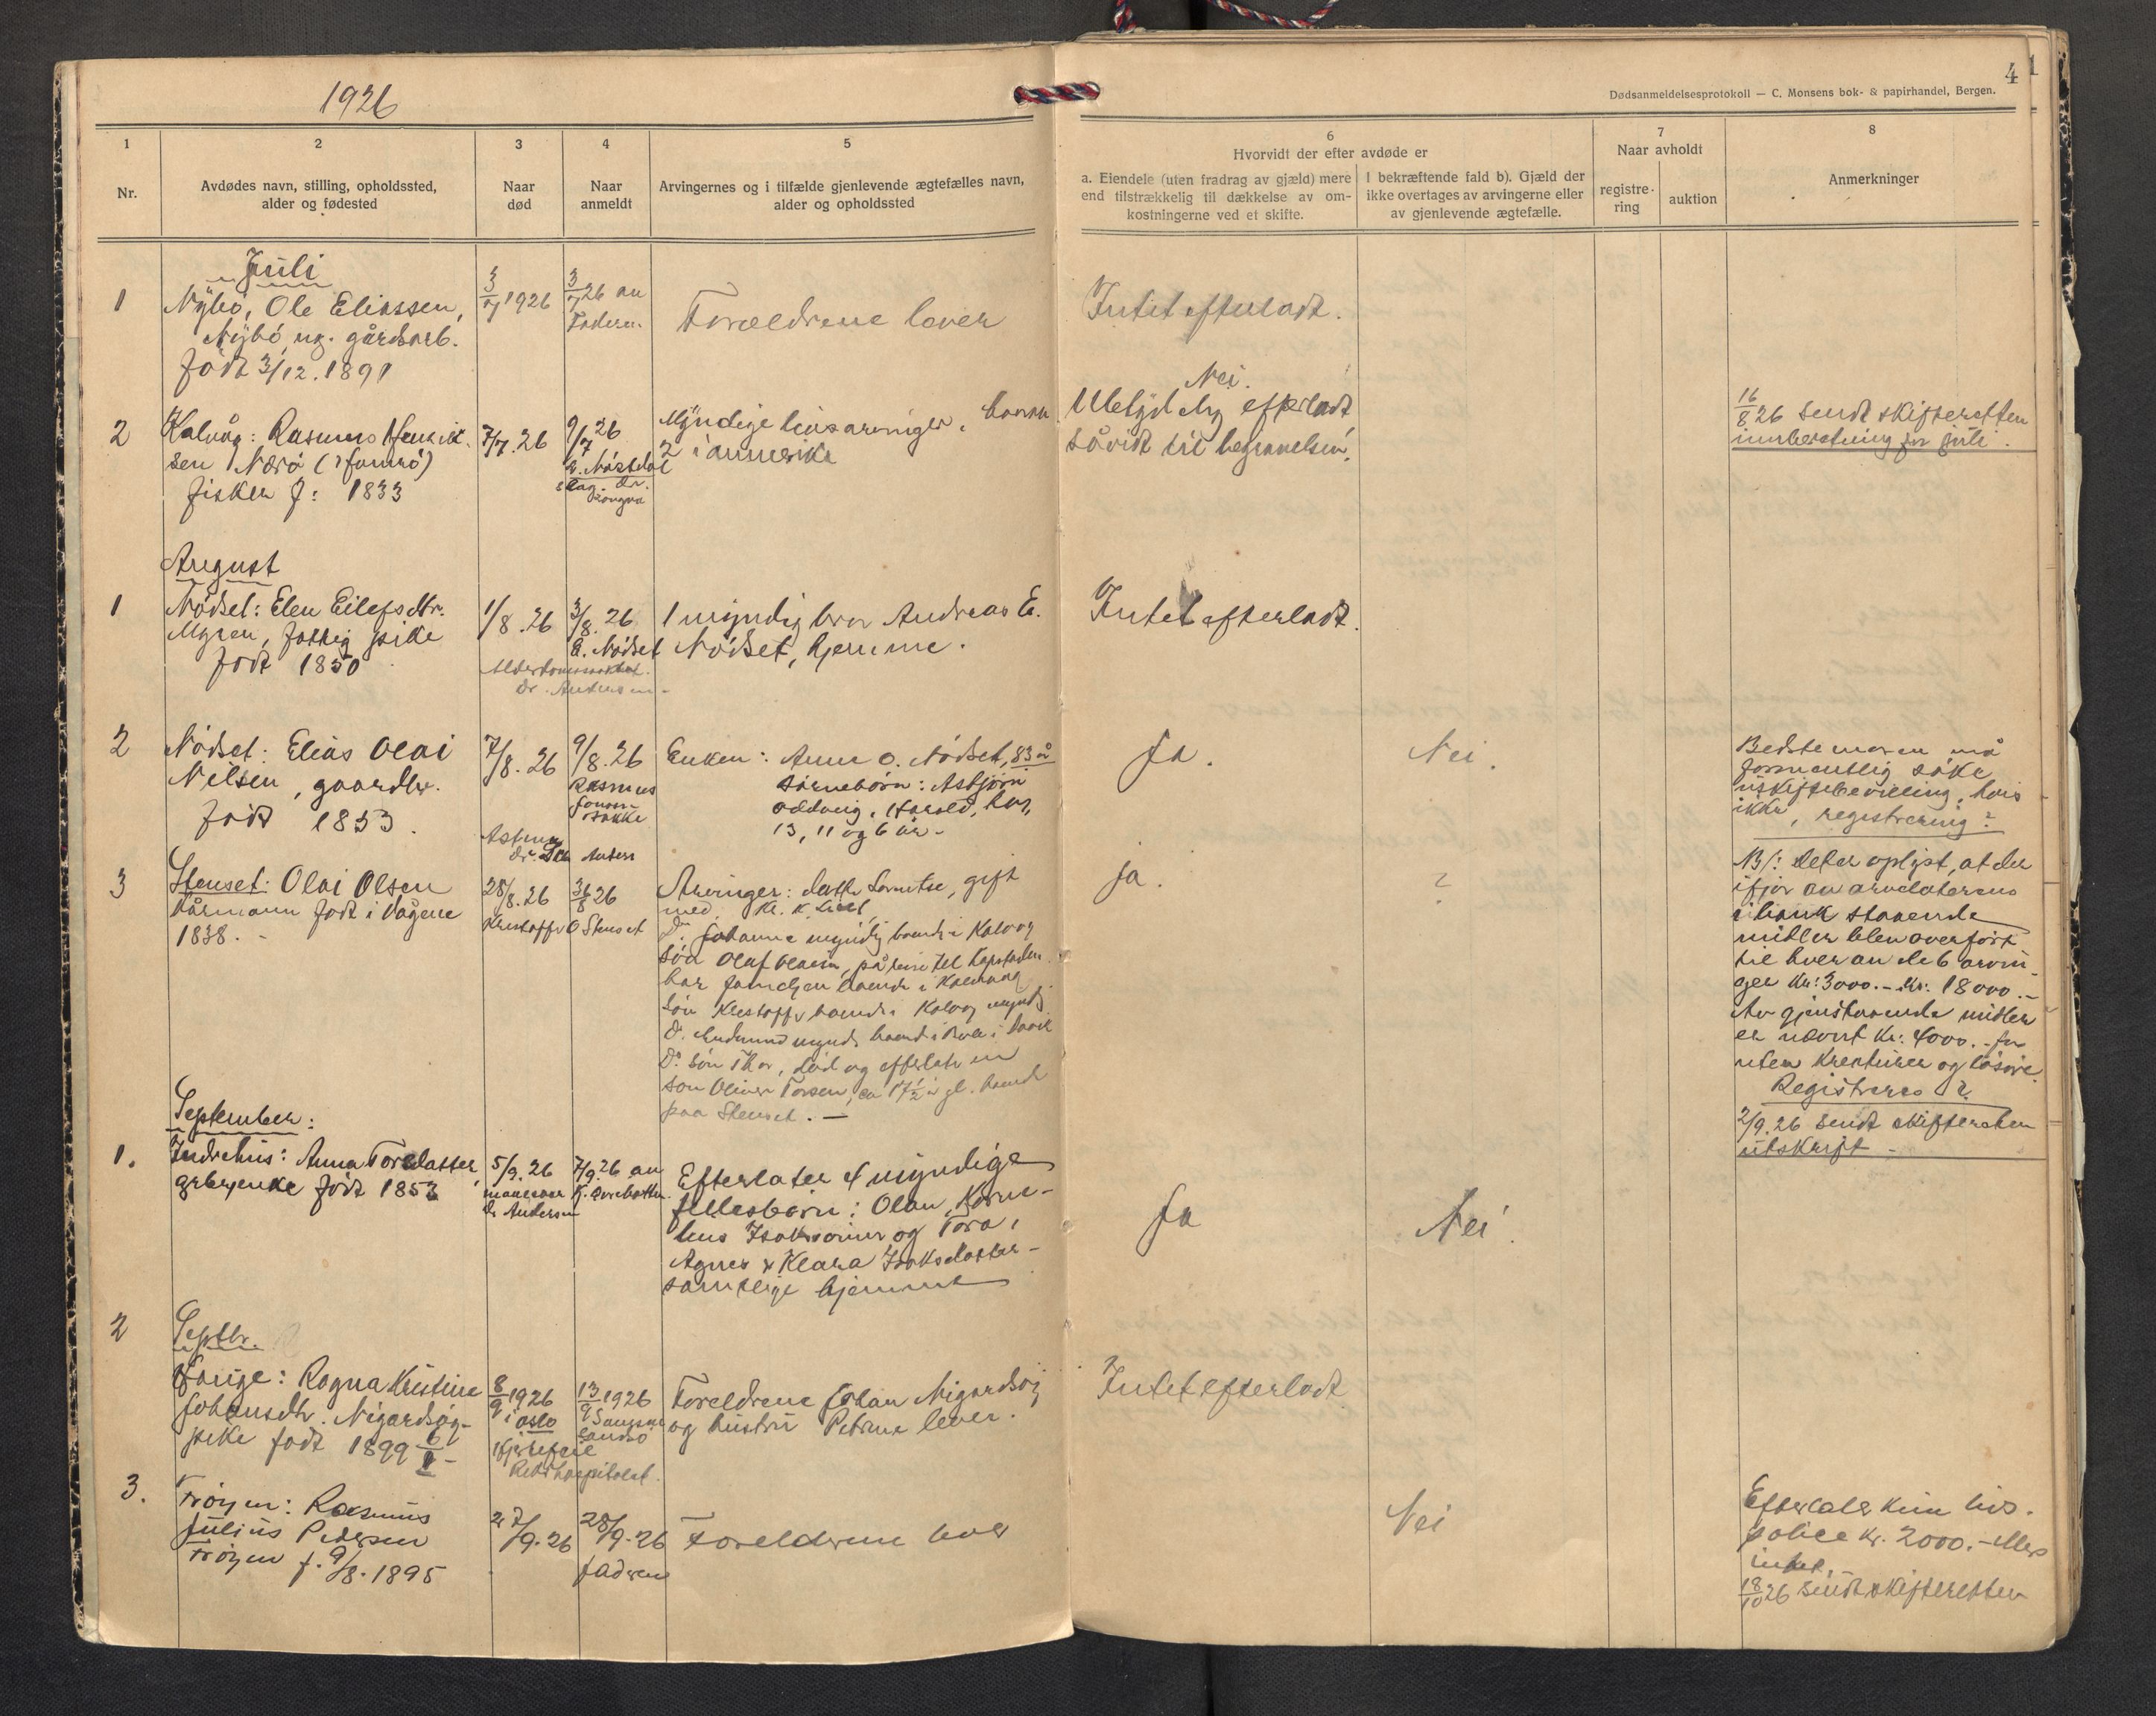 1926
4
Dødsanmeldelsesprotokoll — C. Monsens bok- & papirhandel, Bergen.
1
2
3
4
5
6
7
8
Nr.
Avdødes navn, stilling, opholdssted,
alder og fødested
Naar
død
Naar
anmeldt
Arvingernes og i tilfælde gjenlevende ægtefælles navn,
alder og opholdssted
Hvorvidt der efter avdøde er
a. Eiendele (uten fradrag av gjæld) mere
end tilstrækkelig til dækkelse av om-
kostningerne ved et skifte.
I bekræftende fald b). Gjæld der
ikke overtages av arvingerne eller
av gjenlevende ægtefælle.
Naar avholdt
registre-
ring
auktion
Anmerkninger
Juli
1
Nybö, Ole Eliassen,
Nybö, ug. gårdsarb.
födt 3/12. 1891
3/7 1926
3/7 26 av
Faderen.
Foreldrene lever
Intet efterladt.
2
Kalvåg: Rasmus Henrik-
sen Nærö
fisker f: 1833
7/7. 26
9/7 26
Myndige livsarvinger.
2 i
Nei.
Ubetydelig efterladt
såvidt til begravelsen.
16/8 26 sendt skifteretten
innberetning for juli.
August
1
Nödset: Elen Eilefsdtr.
Myren, fattig pike
födt 1850
1/8. 26
3/8. 26
E. Nödset
dr. Andersen
1 myndig bror Andreas E.
Nödset, hjemme.
Intet efterladt.
2
Nödset: Elias Olai
Nilsen, gaardbr.
födt 1853.
7/8. 26
9/8. 26
Rasmus
Enken: Anne O. Nödset, 83 å
Asbjörn
Oddveig, Harald, hhv.
13, 11 og 6 år-
Ja.
Nei.
Bedstemoren må
formentlig söke
uskiftebevilling, hvis
ikke, registrering?
3
Stenset: Olai Olsen
Kårmann födt i Vågene
1838.
28/8. 26
Kristoffer O Stenset
Arvinger: datter gift
med Kr. K.
D. Johanne myndig boende i Kalvåg
Sön Olaf Olaisen, på reise til Kapstaden
har familjen boende i Kalvaag
Sön Kristoffer boende i Kalvåg mynd.
Dö. sön Thor, död og efterlatr en
sön Oliver Torsen, ca 17½ år gl. boende
paa Stenset. —
ja.
?
NB: det er oplyst, at der
ifjor av arvelaterens
i bank staaende
midler blev overfört
til hver av de 6 arvin-
ger kr: 3000.- kr: 18000.-
Av gjenstaaende midler
er nævnt kr: 4000.- for
uten kreaturer og lösöre.
Registreres?
2/9. 26 sendt skifteretten
utskrift -
September:
1.
Indrehus: Anna Torsdatter,
grbr.enke födt 1853
5/9. 26
dr Andersen
7/9. 26 av
Efterlater 4 myndige
fellesbörn: Olav, Korne-
lius Isaksönner og Tora,
Agnes & Klara Isaksdatter-
samtlige hjemme
Ja
Nei.
2
Septbr.
Fauge: Ragna Kristine
Johansdtr. Nigardsög-
pike födt 1899
8/9 1926
i Oslo
Rikshospitalet.
13/9 1926
Foreldrene Johan Nigardsög
og hustru Petrine lever.
Intet efterladt
3.
Fröyen: Rasmus
Julius Pedersen
Fröyen f. 9/8. 1895
27/9. 26
28/9. 26
fadren
Foreldrene lever
Nei
Efterlater kun livs-
police kr. 2000.- ellers
intet.
18/10 26 sendt skifteretten